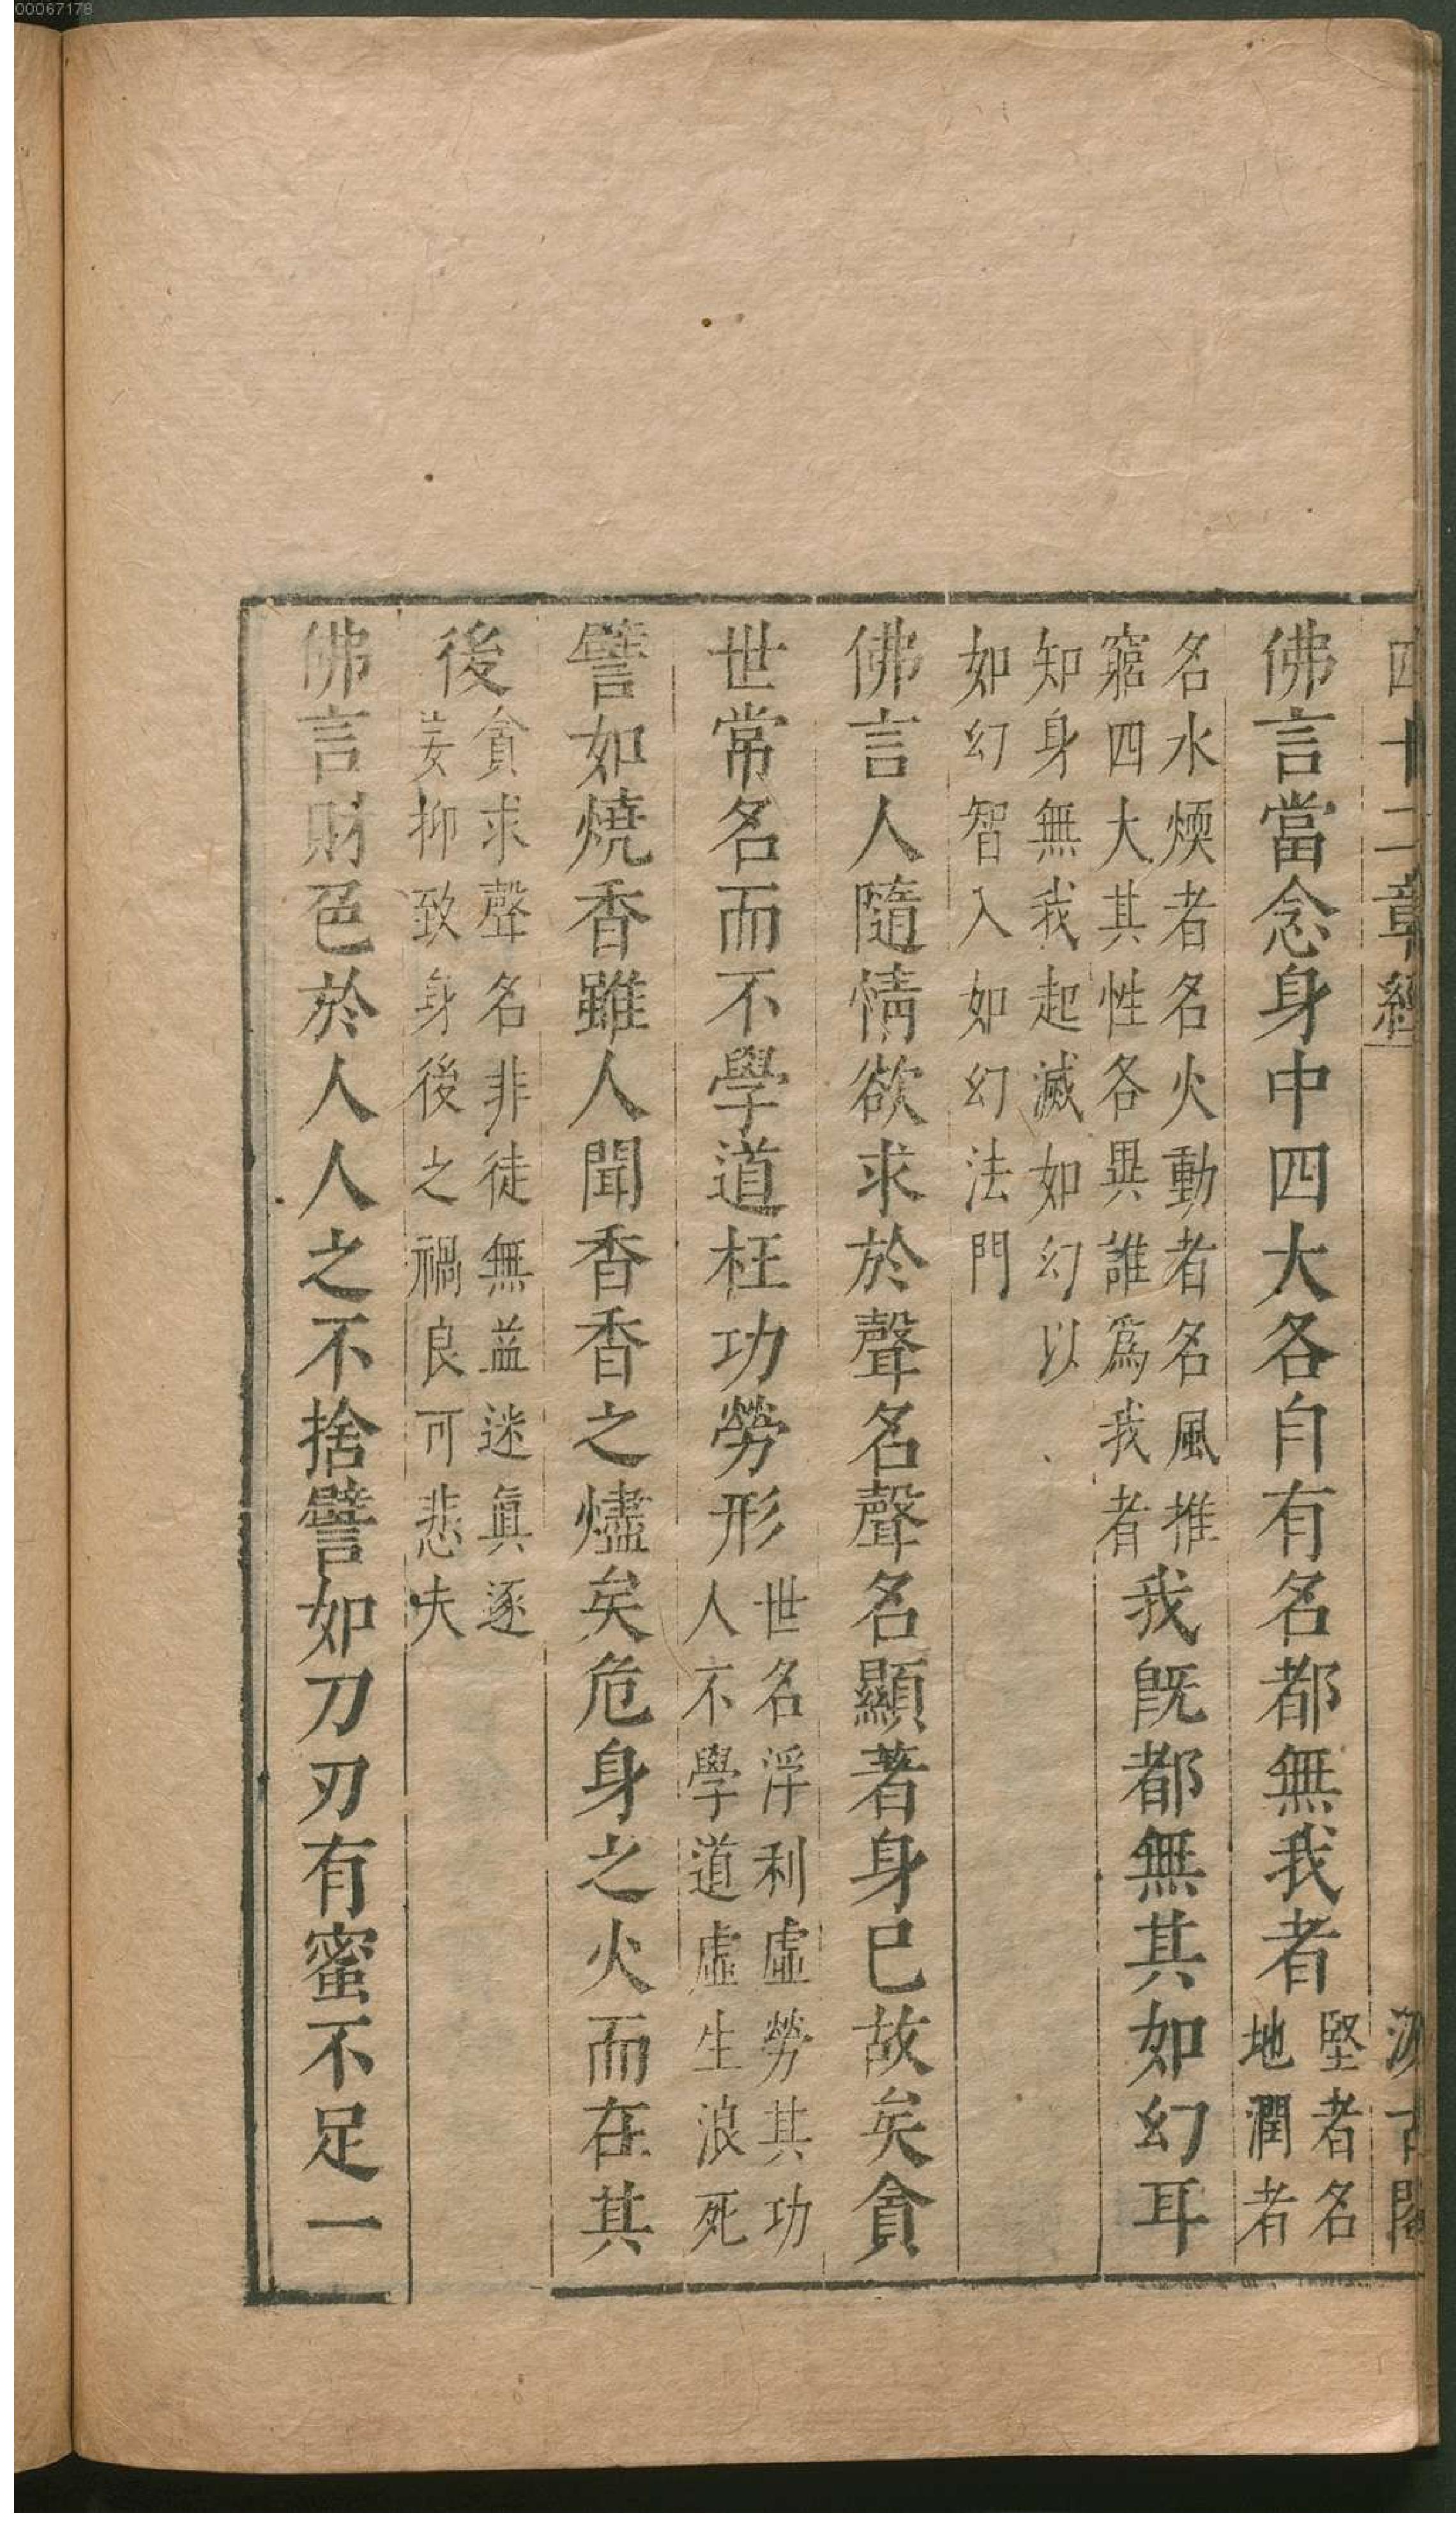 00067178
四十二章經 汲古閣
佛言當念身中四大各自有名都無我者堅者名地潤者
名水煖者名火動者名風推窮四大其性各異誰爲我者我旣都無其如幻耳
知身無我起滅如幻以如幻智入如幻法門
佛言人隨情欲求於聲名聲名顯著身已故矣貪
世常名而不學道枉功勞形世名浮利虛勞其功人不學道虛生浪死
譬如燒香雖人聞香香之燼矣危身之火而在其
後貪求聲名非徒無益迷眞逐妄抑致身後之禍良可悲夫
佛言財色於人人之不捨譬如刀刃有蜜不足一